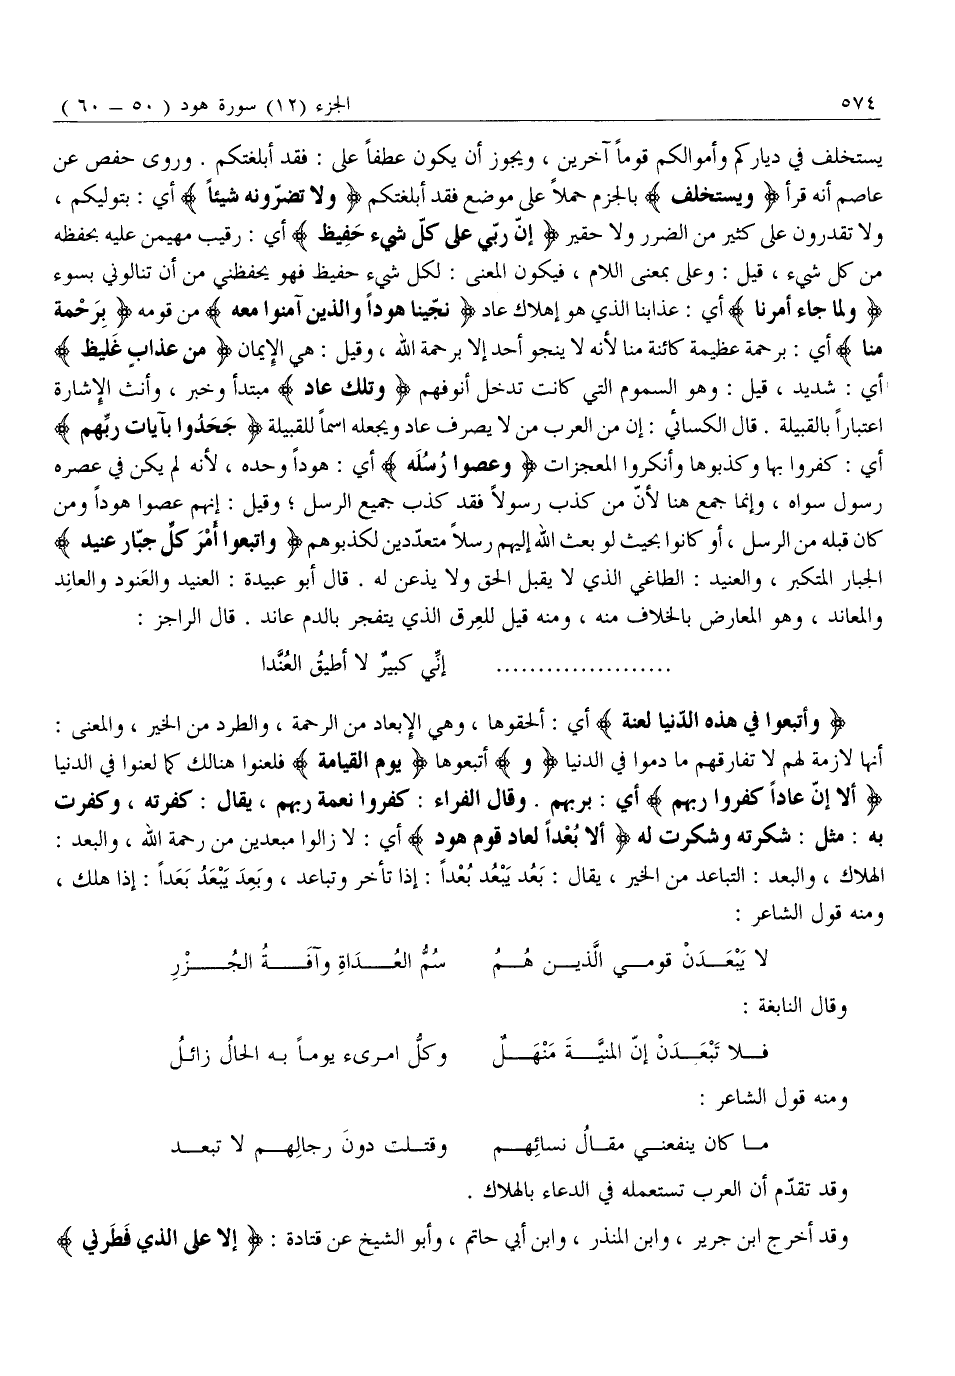 ٥٧٤ الجزء (١٢) سورة هود ( ٥٠ – ٦٠ )
يستخلف في دياركم وأموالكم قوماً آخرين ، ويجوز أن يكون عطفاً على : فقد أبلغتكم . وروى حفص عن
عاصم أنه قرأ ﴿ ويستخلف ﴾ بالجزم حملاً على موضع فقد أبلغتكم ﴿ ولا تضرّونه شيئاً ﴾ أي : بتوليكم ،
ولا تقدرون على كثير من الضرر ولا حقير ﴿ إنّ ربّي على كلّ شيء حَفِيظ ﴾ أي : رقيب مهيمن عليه يحفظه
من كل شيء ، قيل : وعلى بمعنى اللام ، فيكون المعنى : لكل شيء حفيظ فهو يحفظني من أن تنالوني بسوء
﴿ ولما جاء أمرنا ﴾ أي : عذابنا الذي هو إهلاك عاد ﴿ نجّينا هوداً والذين آمنوا معه ﴾ من قومه ﴿ بِرَحْمة
منا ﴾ أي : برحمة عظيمة كائنة منا لأنه لا ينجو أحد إلا برحمة الله ، وقيل : هي الإيمان ﴿ من عذابٍ غَليظ ﴾
أي : شديد ، قيل : وهو السموم التي كانت تدخل أنوفهم ﴿ وتلك عاد ﴾ مبتدأ وخبر ، وأنث الإشارة
اعتباراً بالقبيلة . قال الكسائي : إن من العرب من لا يصرف عاد ويجعله اسماً للقبيلة ﴿ جَحَدُوا بآيات ربِّهم ﴾
أي : كفروا بها وكذبوها وأنكروا المعجزات ﴿ وعصوا رُسُلَه ﴾ أي : هوداً وحده ، لأنه لم يكن في عصره
رسول سواه ، وإنما جمع هنا لأنّ من كذب رسولاً فقد كذب جميع الرسل ؛ وقيل : إنهم عصوا هوداً ومن
كان قبله من الرسل ، أو كانوا بحيث لو بعث الله إليهم رسلاً متعدّدين لكذبوهم ﴿ واتبعوا أَمْرَ كلِّ جبّار عنيد ﴾
الجبار المتكبر ، والعنيد : الطاغي الذي لا يقبل الحق ولا يذعن له . قال أبو عبيدة : العنيد والعَنود والعانِد
والمعاند ، وهو المعارض بالخلاف منه ، ومنه قيل للعِرق الذي يتفجر بالدم عاند . قال الراجز :
..................... إنِّي كبيرٌ لا أطيقُ العُنَّدا
﴿ وأتبعوا في هذه الدّنيا لعنة ﴾ أي : ألحقوها ، وهي الإبعاد من الرحمة ، والطرد من الخير ، والمعنى :
أنها لازمة لهم لا تفارقهم ما دموا في الدنيا ﴿ و ﴾ أتبعوها ﴿ يوم القيامة ﴾ فلعنوا هنالك كما لعنوا في الدنيا
﴿ ألا إنّ عاداً كفروا ربهم ﴾ أي : بربهم . وقال الفراء : كفروا نعمة ربهم ، يقال : كفرته ، وكفرت
به : مثل : شكرته وشكرت له ﴿ ألا بُعْداً لعاد قوم هود ﴾ أي : لا زالوا مبعدين من رحمة الله ، والبعد :
الهلاك ، والبعد : التباعد من الخير ، يقال : بَعُد يَبْعُد بُعْداً : إذا تأخر وتباعد ، وبَعِدَ يَبْعَدُ بَعَداً : إذا هلك ،
ومنه قول الشاعر :
لا يَبْعَـدَنْ قومـي الَّذيـن هُـمُ سُمُّ العُـداةِ وآفَـةُ الجُـزْرِ
وقال النابغة :
فـلا تَبْعَـدَنْ إنّ المنيَّـةَ مَنْهَـلٌ وكلُّ امرىء يومـاً بـه الحالُ زائلُ
ومنه قول الشاعر :
مـا كان ينفعنـي مقـالُ نسائِهـم وقتـلت دونَ رجالِهـم لا تبعـد
وقد تقدّم أن العرب تستعمله في الدعاء بالهلاك .
وقد أخرج ابن جرير ، وابن المنذر ، وابن أبي حاتم ، وأبو الشيخ عن قتادة : ﴿ إلا على الذي فَطَرني ﴾